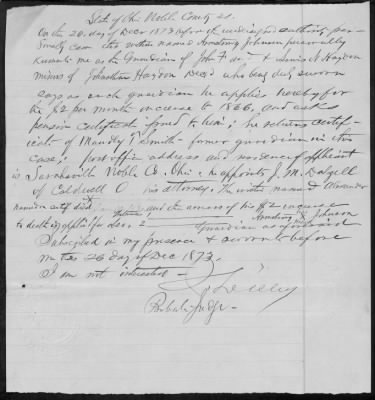 State of Ohio Noble County ss.
On the 26 day of Decr 1873 before the undersigned authority per-
sonally came the within named Armstrong Johnson personally
known to me as the Guardian of John F. and Lewis N. Haydon
minors of Johnathan Haydon Decd who being duly sworn
says as such guardian he applies hereby for
the $2 per month increase to 1866, and asks
pension certificate issued to him; he returns certif-
icate of Mandly T Smith - former guardian in this
case; post office address and residence of applicant
is Sarahsville Noble Co. Ohio. he appoints J. M. Dalzell
of Caldwell O his attorney. The within named Alexander
named in certif died and the arrears of his $2 increase
to death is applied for also. Armstrong Johnson
Guardian as aforesaid
Subscribed in my presence & sworn to before
me this 26 day of Dec 1873.
I am not interested -
Probate Judge -